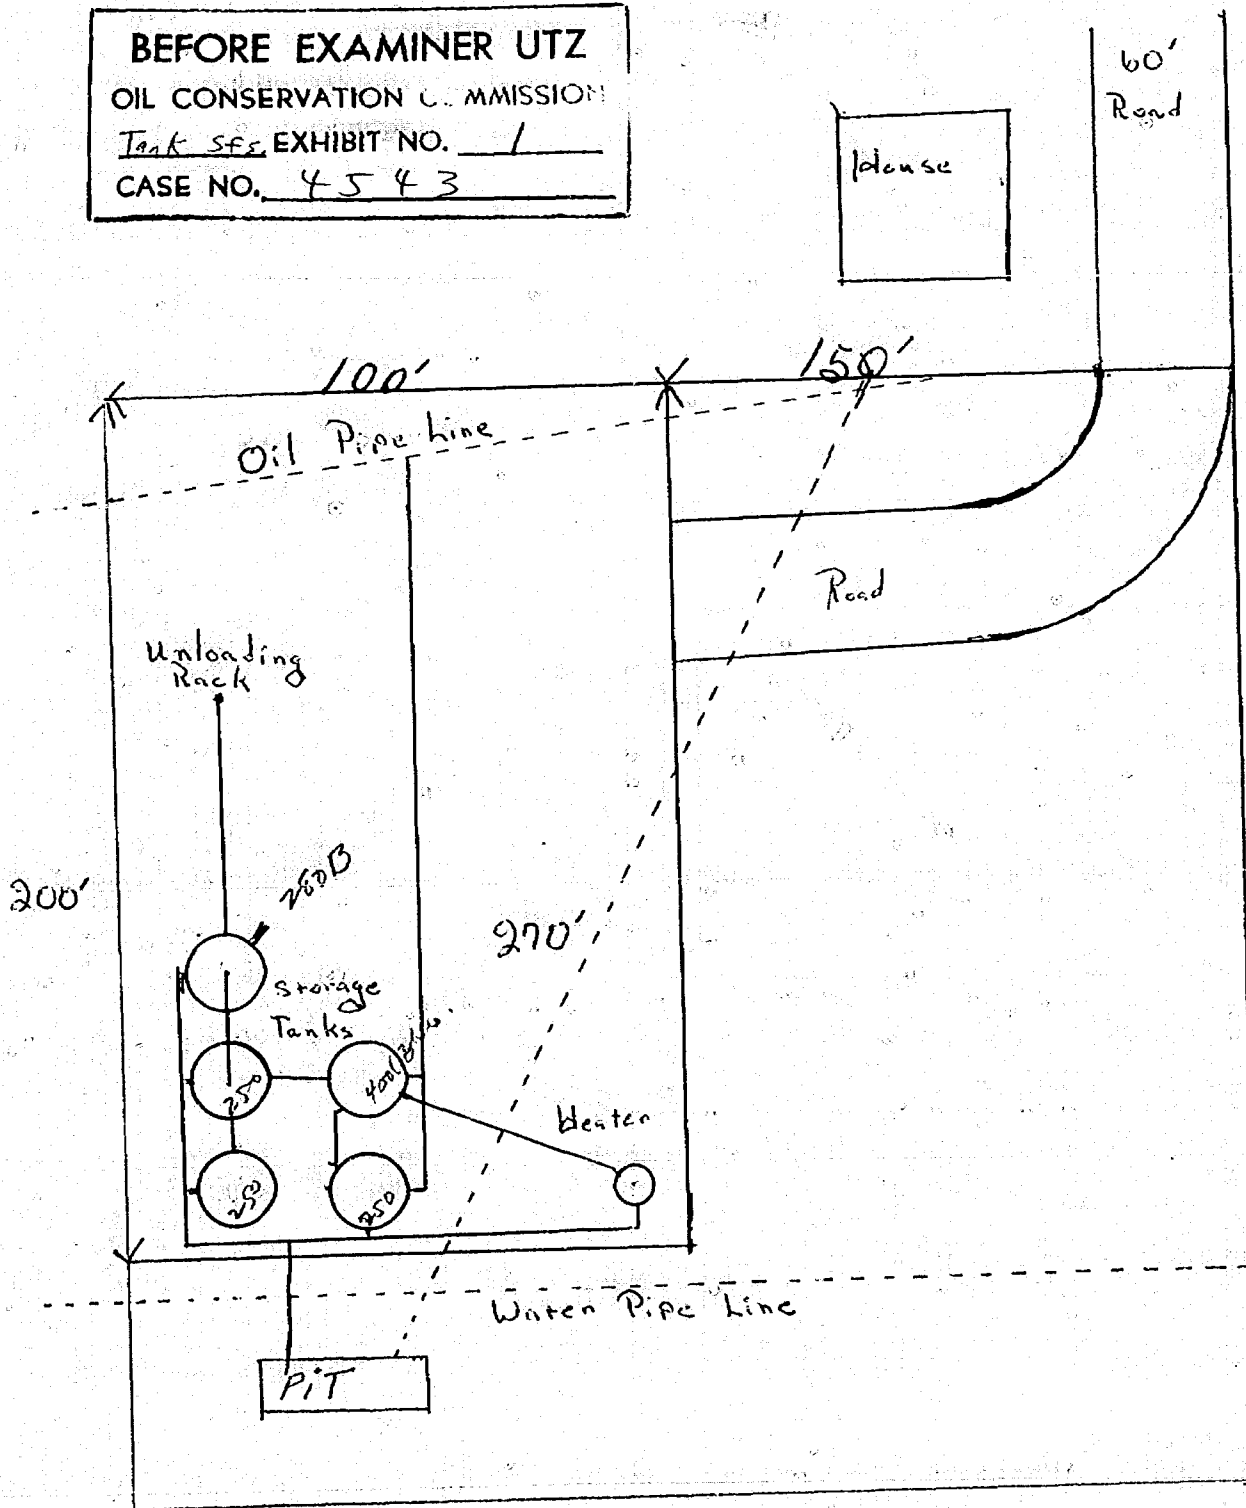 BEFORE EXAMINER UTZ
OIL CONSERVATION C. MMISSION
Tank Sfs. EXHIBIT NO. 1
CASE NO. 4543
60'
Road
House
100'
150'
Oil Pipe Line
Road
Unloading
Rack
200'
250B
270'
Storage
Tanks
250
400
Heater
250
250
Water Pipe Line
PiT